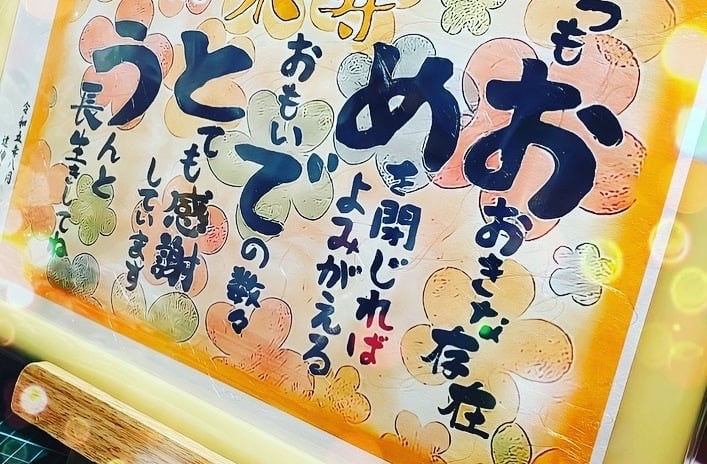 つも
おおきな存在
めを閉じれば
よみがえる
おもい
での数々
とても感謝
しています
うんと
長生きしてね
令和五年